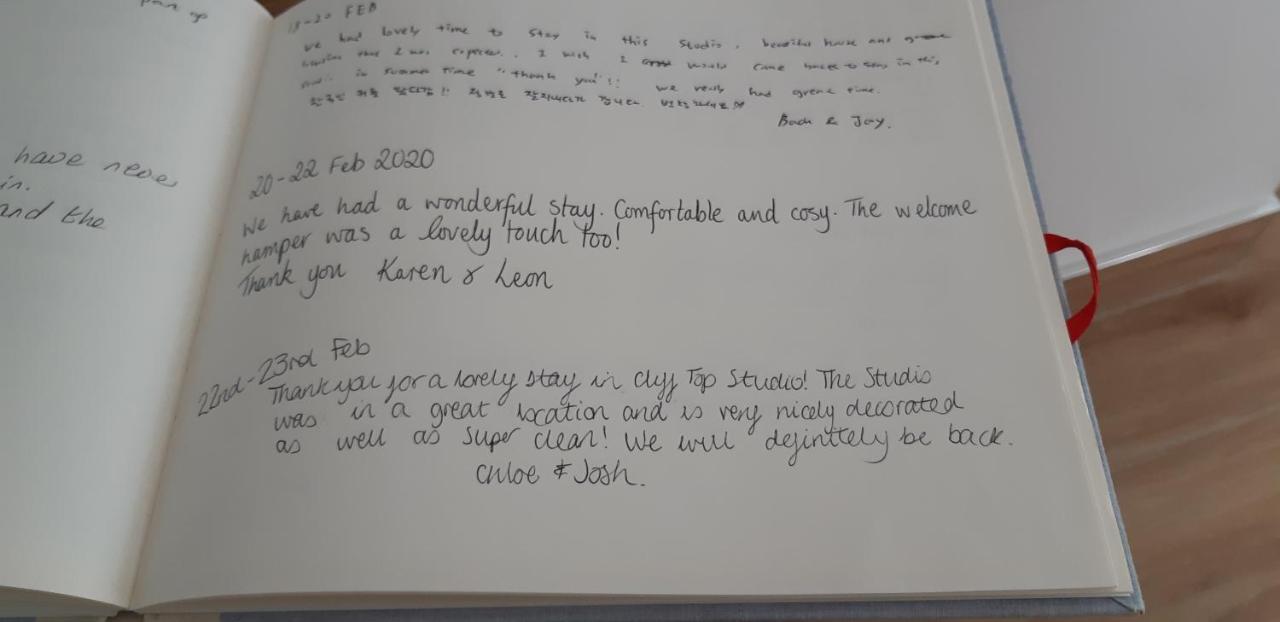 pan up
have never
in.
and the
18-20 FEB
we had lovely time to stay in this studio, beautiful house and
. I wish I would come back to stay in this,
in summer time "thank you"!! we really had great time.
Baek & Jay.
20-22 Feb 2020
We have had a wonderful stay. Comfortable and cosy. The welcome
hamper was a lovely touch too!
Thank you Karen & Leon
22nd-23rd Feb
Thankyou for a lovely stay in Cliff Top Studio! The Studio
was in a great location and is very nicely decorated
as well as super clean! We will definitely be back.
Chloe & Josh.